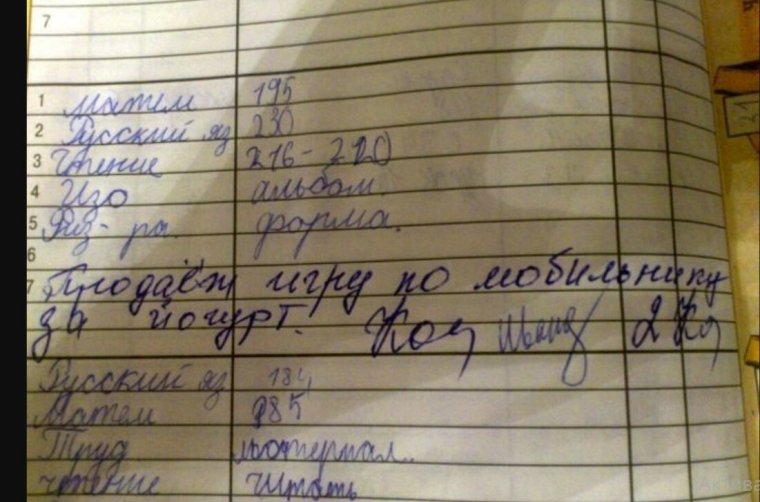 7
1 матем 195
2 Русский яз 230
3 Чтение 216-220
4 Изо альбом
5 Физ-ра. форма.
6
7 Продаёт игру по мобильнику
за йогурт.
Русский яз 184
Матем 985
Труд матермал..
чтение Читать